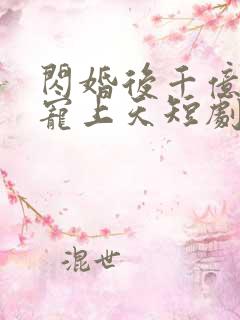 閃婚後千億
寵上天短劇
混世